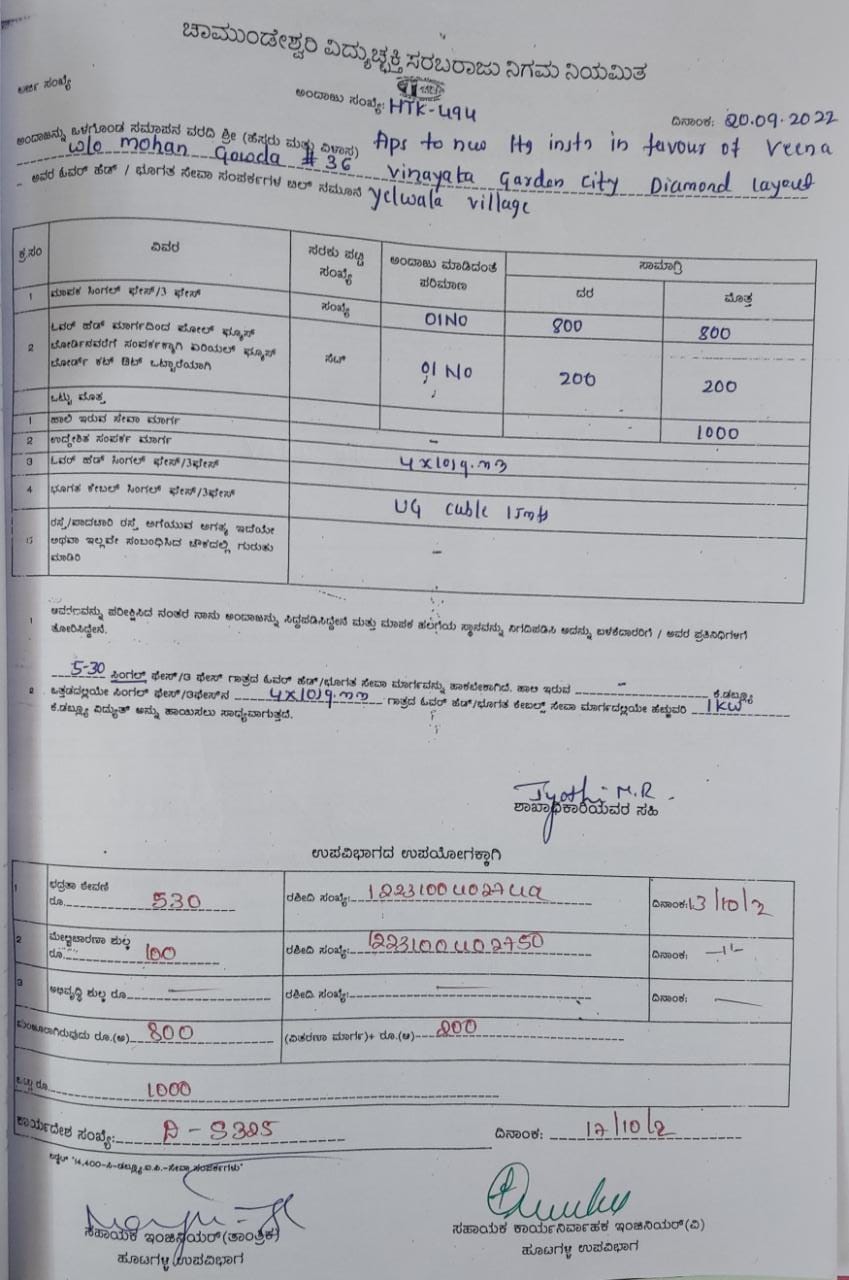 ಚಾಮುಂಡೇಶ್ವರಿ ವಿದ್ಯುಚ್ಛಕ್ತಿ ಸರಬರಾಜು ನಿಗಮ ನಿಯಮಿತ
ಅರ್ಜಿ ಸಂಖ್ಯೆ
ಅಂದಾಜು ಸಂಖ್ಯೆ: HTK-494
ದಿನಾಂಕ: 20.09.2022
ಅಂದಾಜನ್ನು ಒಳಗೊಂಡ ಸಮಾಪನ ವರದಿ ಶ್ರೀ (ಹೆಸರು ಮತ್ತು ವಿಳಾಸ) Aps to new Htg instn in favour of Veena
w/o mohan Gowda # 36 vinayaka Garden City Diamond layout
ಅವರ ಓವರ್ ಹೆಡ್ / ಭೂಗತ ಸೇವಾ ಸಂಪರ್ಕಗಳ ಬಿಲ್ ನಮೂನೆ yelwala village
ಕ್ರ.ಸಂ ವಿವರ ಸರಕು ಪಟ್ಟಿ ಸಂಖ್ಯೆ ಅಂದಾಜು ಮಾಡಿದಂತೆ ಪರಿಮಾಣ ಸಾಮಾಗ್ರಿ
ದರ ಮೊತ್ತ
1 ಮಾಪಕ ಸಿಂಗಲ್ ಫೇಸ್/3 ಫೇಸ್ ಸಂಖ್ಯೆ 01No 800 800
ಓವರ್ ಹೆಡ್ ಮಾರ್ಗದಿಂದ ಪೋಲ್ ಫ್ಯೂಸ್
2 ಬೋರ್ಡಿನವರೆಗೆ ಸಂಪರ್ಕಕ್ಕಾಗಿ ಏರಿಯಲ್ ಫ್ಯೂಸ್ ಸೆಟ್ 01 No 200 200
ಬೋರ್ಡ್ ಕಟ್ ಔಟ್ ಒಟ್ಟಾರೆಯಾಗಿ
ಒಟ್ಟು ಮೊತ್ತ 1000
1 ಹಾಲಿ ಇರುವ ಸೇವಾ ಮಾರ್ಗ
2 ಉದ್ದೇಶಿತ ಸಂಪರ್ಕ ಮಾರ್ಗ -
3 ಓವರ್ ಹೆಡ್ ಸಿಂಗಲ್ ಫೇಸ್/3ಫೇಸ್ 4x10sq.mm
4 ಭೂಗತ ಕೇಬಲ್ ಸಿಂಗಲ್ ಫೇಸ್/3ಫೇಸ್ UG cable 15mts
ರಸ್ತೆ/ಪಾದಚಾರಿ ರಸ್ತೆ ಅಗೆಯುವ ಅಗತ್ಯ ಇದೆಯೇ
ಅಥವಾ ಇಲ್ಲವೇ ಸಂಬಂಧಿಸಿದ ಚೌಕದಲ್ಲಿ ಗುರುತು -
ಮಾಡಿರಿ
1 ಆವರಣವನ್ನು ಪರೀಕ್ಷಿಸಿದ ನಂತರ ನಾನು ಅಂದಾಜನ್ನು ಸಿದ್ಧಪಡಿಸಿದ್ದೇನೆ ಮತ್ತು ಮಾಪಕ ಹಲಗೆಯ ಸ್ಥಾನವನ್ನು ನಿಗದಿಪಡಿಸಿ ಅದನ್ನು ಬಳಕೆದಾರರಿಗೆ / ಅವರ ಪ್ರತಿನಿಧಿಗಳಿಗೆ
ತೋರಿಸಿದ್ದೇನೆ.
5-30 ಸಿಂಗಲ್ ಫೇಸ್/3 ಫೇಸ್ ಗಾತ್ರದ ಓವರ್ ಹೆಡ್/ಭೂಗತ ಸೇವಾ ಮಾರ್ಗವನ್ನು ಹಾಕಬೇಕಾಗಿದೆ. ಹಾಲಿ ಇರುವ - ಕೆ.ಡಬ್ಲ್ಯೂ
2 ಒತ್ತಡದಲ್ಲಿಯೇ ಸಿಂಗಲ್ ಫೇಸ್/3ಫೇಸ್‌ನ 4x10sq.mm ಗಾತ್ರದ ಓವರ್ ಹೆಡ್/ಭೂಗತ ಕೇಬಲ್ಸ್ ಸೇವಾ ಮಾರ್ಗದಲ್ಲಿಯೇ ಹೆಚ್ಚುವರಿ 1kw
ಕೆ.ಡಬ್ಲ್ಯೂ ವಿದ್ಯುತ್ ಅನ್ನು ಹಾಯಿಸಲು ಸಾಧ್ಯವಾಗುತ್ತದೆ.
Jyothi M.R
ಶಾಖಾಧಿಕಾರಿಯವರ ಸಹಿ
ಉಪವಿಭಾಗದ ಉಪಯೋಗಕ್ಕಾಗಿ
1 ಭದ್ರತಾ ಠೇವಣಿ
ರೂ. 530 ರಶೀದಿ ಸಂಖ್ಯೆ: 1223100402749 ದಿನಾಂಕ: 13/10/2
2 ಮೇಲ್ವಿಚಾರಣಾ ಶುಲ್ಕ
ರೂ. 100 ರಶೀದಿ ಸಂಖ್ಯೆ: 1223100402750 ದಿನಾಂಕ: -"-
3 ಅಭಿವೃದ್ಧಿ ಶುಲ್ಕ ರೂ. ರಶೀದಿ ಸಂಖ್ಯೆ: ದಿನಾಂಕ:
ಮಂಜೂರಾಗಿರುವುದು ರೂ.(ಅ) 800 (ವಿತರಣಾ ಮಾರ್ಗ)+ ರೂ.(ಆ) 200
ಒಟ್ಟು ರೂ. 1000
ಕಾರ್ಯದೇಶ ಸಂಖ್ಯೆ: D-5325 ದಿನಾಂಕ: 17/10/2
ಸಹಾಯಕ ಇಂಜಿನಿಯರ್(ತಾಂತ್ರಿಕ)
ಹೂಟಗಳ್ಳಿ ಉಪವಿಭಾಗ
ಸಹಾಯಕ ಕಾರ್ಯನಿರ್ವಾಹಕ ಇಂಜಿನಿಯರ್(ವಿ)
ಹೂಟಗಳ್ಳಿ ಉಪವಿಭಾಗ